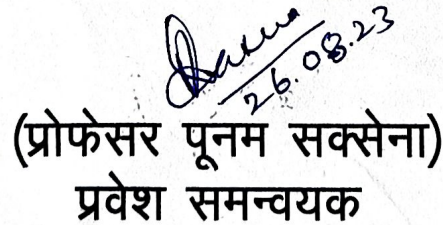 26.08.23
(प्रोफेसर पूनम सक्सेना)
प्रवेश समन्वयक